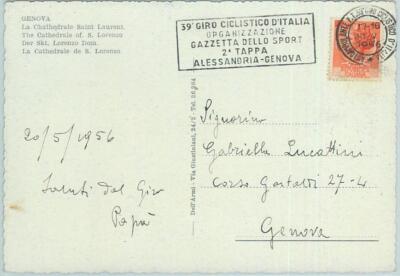 GENOVA
La Chathedrale Saint Laurent.
The Cathedrale of. S. Lorenzo
Der Skt. Lorenzo Dom.
La Cathedrale de S. Lorenzo
39° GIRO CICLISTICO D'ITALIA
ORGANIZZAZIONE
GAZZETTA DELLO SPORT
2ª TAPPA
ALESSANDRIA-GENOVA
20/5/1956
Saluti dal Giro
Papà
Dell'Armi - Via Giustiniani, 24/2 - Tel. 26.984
Signorina
Gabriella Lucattini
Corso Gastaldi 27-4
Genova